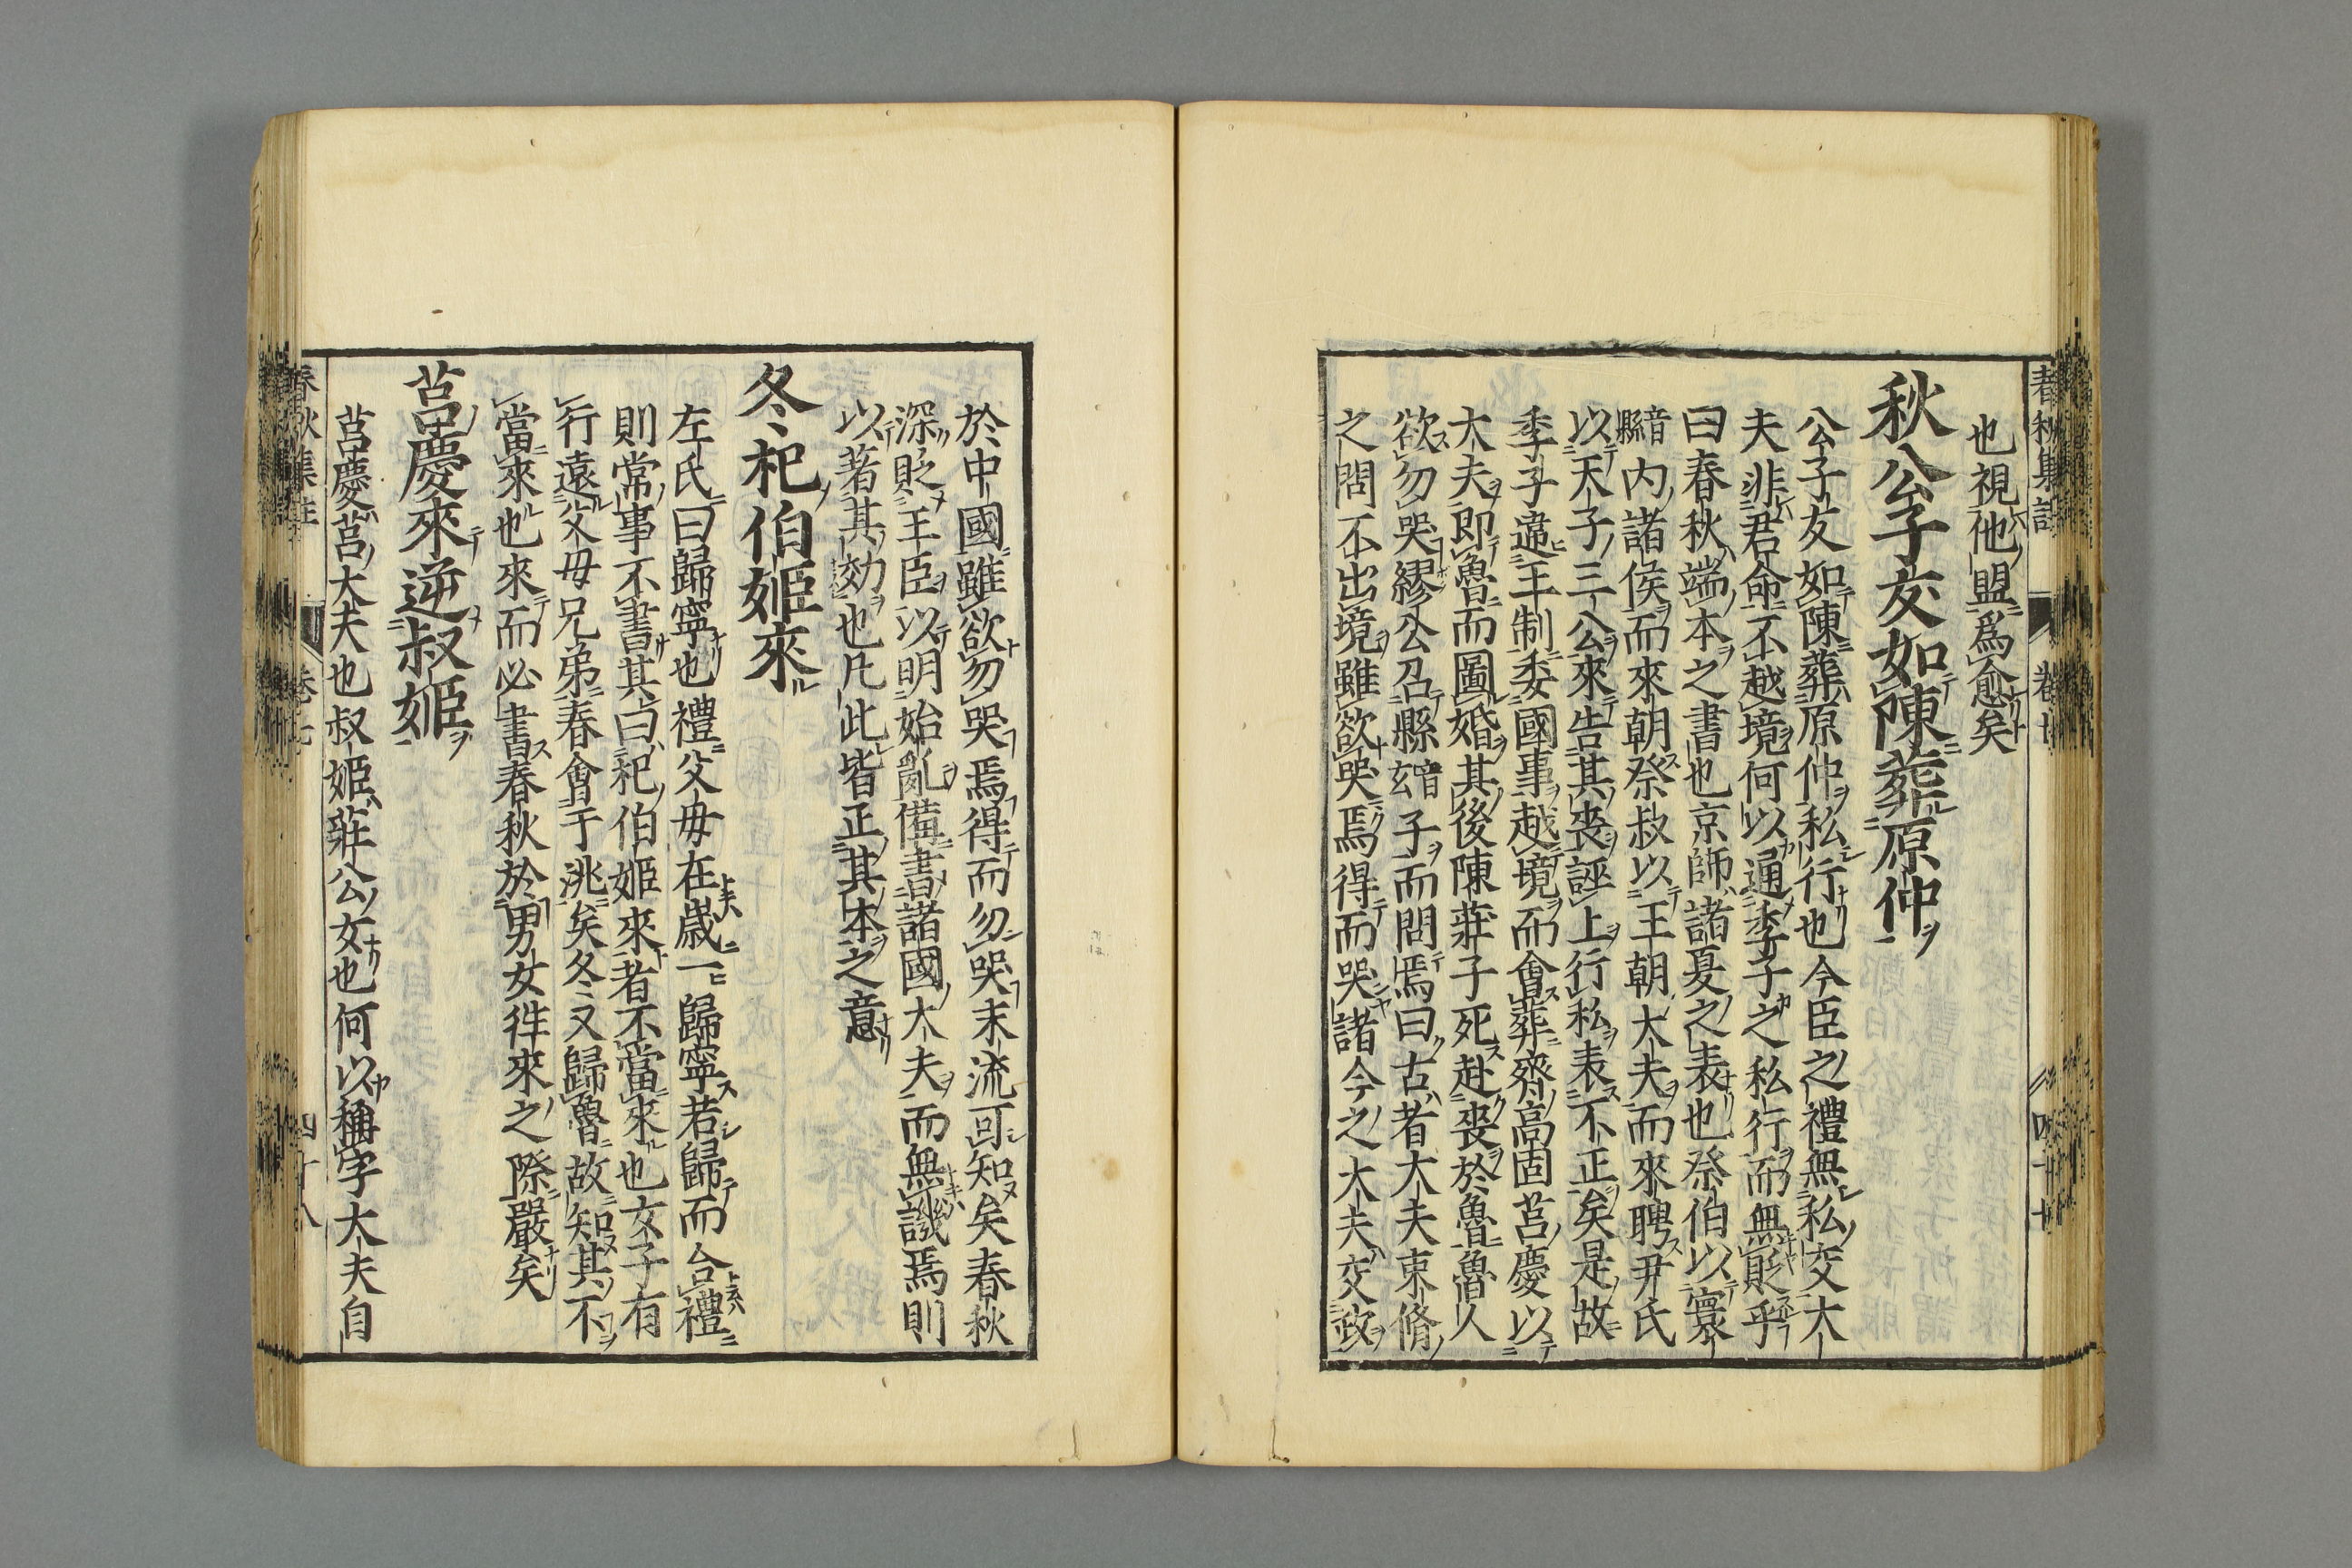 也視他盟爲愈矣
秋公子友如陳葬原仲
公子友如陳葬原仲私行也今臣之禮無私交大
夫非君命不越境何以通季子之私行而無貶乎
曰春秋端本之書也京師諸夏之表也祭伯以寰
音縣内諸侯而來朝祭叔以王朝大夫而來聘尹氏
以天子三公來告其喪誣上行私表不正矣是故
季子違王制委國事越境而會葬齊高固莒慶以
大夫即魯而圖婚其後陳莊子死赴喪於魯魯人
欲勿哭繆公召縣音玄子而問焉曰古者大夫束脩
之問不出境雖欲哭焉得而哭諸今之大夫交政
於中國雖欲勿哭焉得而勿哭末流可知矣春秋
深貶王臣以明始亂備書諸國大夫而無譏焉則
以著其効也凡此皆正其本之意
冬杞伯姬來
左氏曰歸寧也禮父母在歳一歸寧若歸而合禮
則常事不書其曰杞伯姬來者不當來也女子有
行遠父母兄弟春會于洮矣冬又歸魯故知其不
當來也來而必書春秋於男女徃來之際嚴矣
莒慶來逆叔姬
莒慶莒大夫也叔姬莊公女也何以稱字大夫自
春秋集註 卷七 四十八